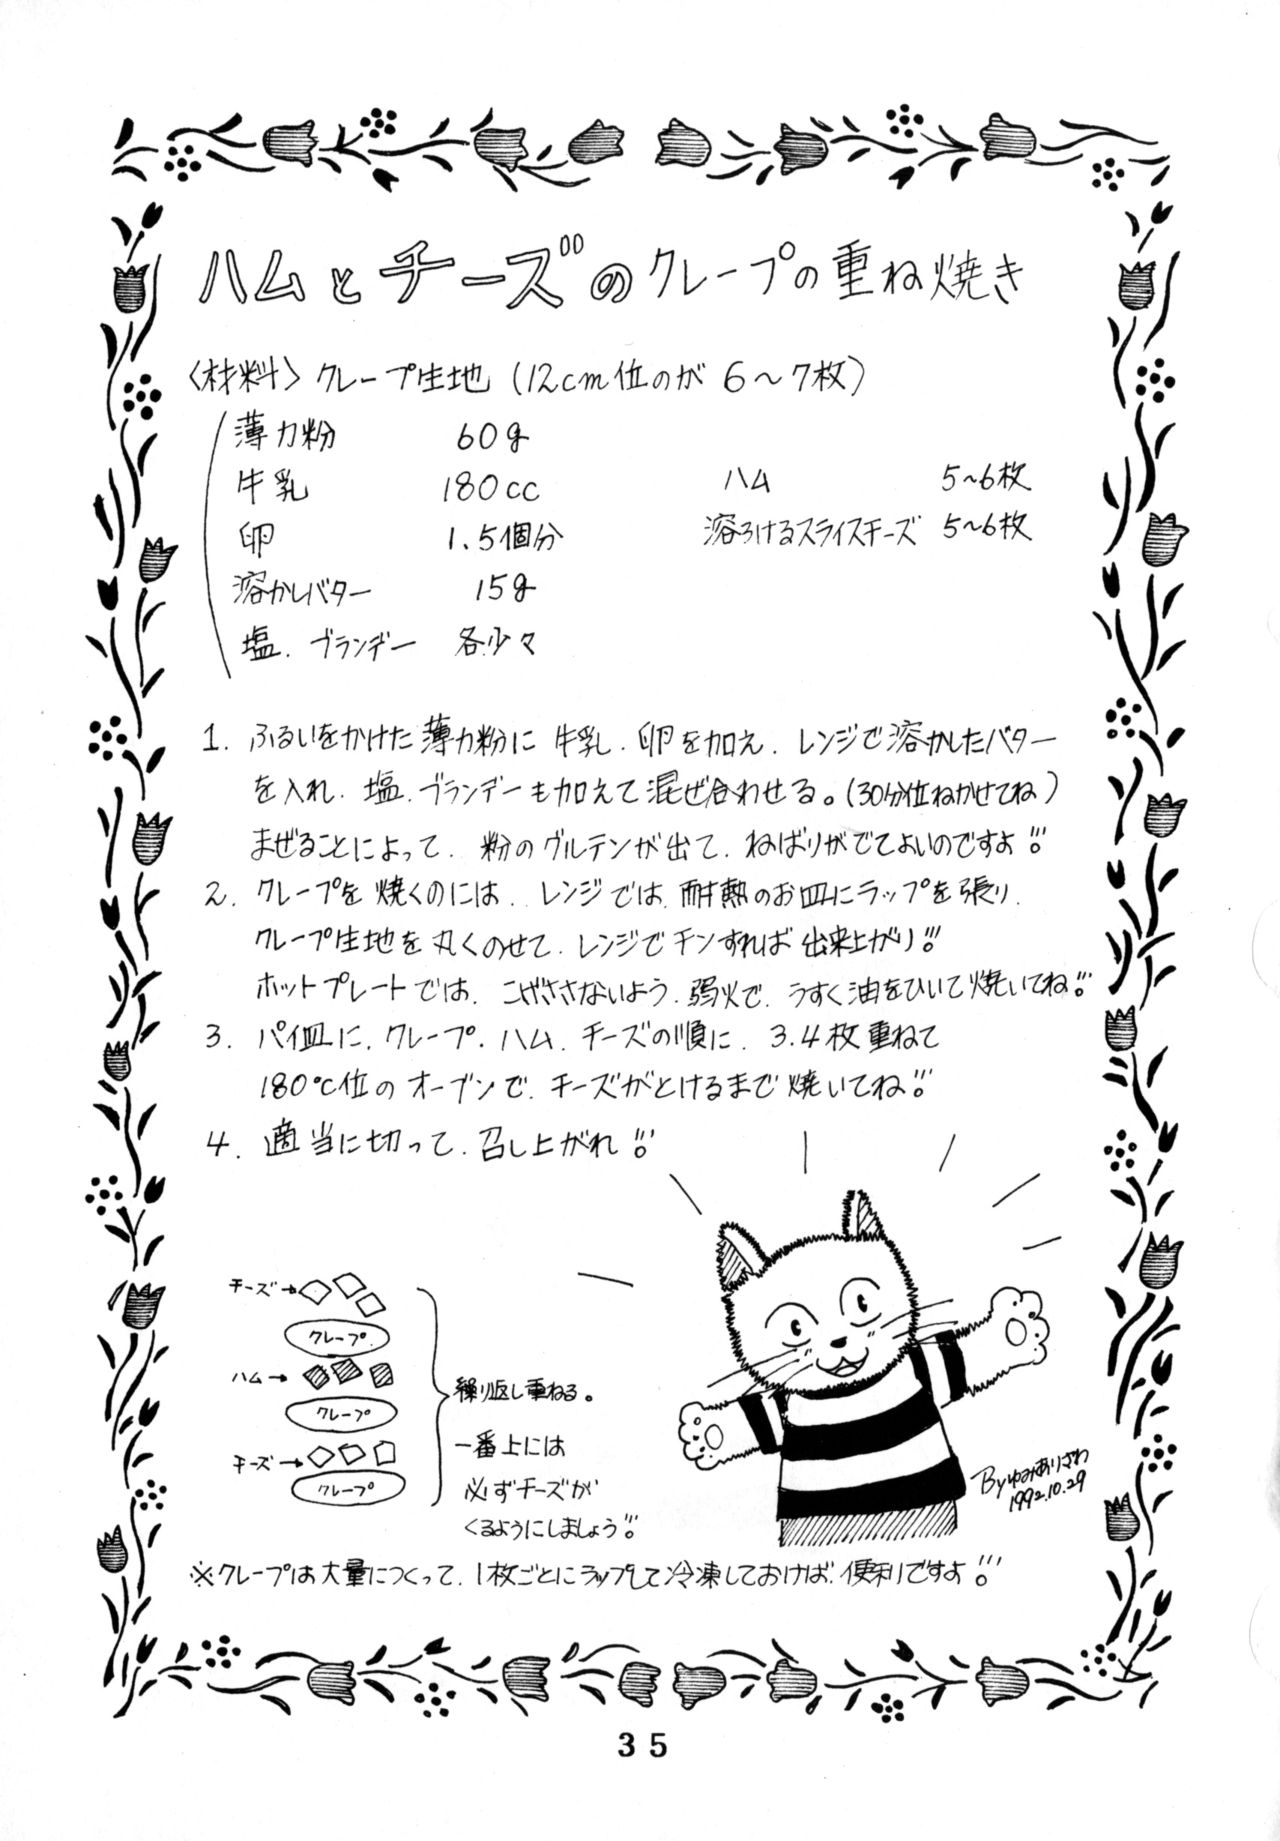 ハムとチーズのクレープの重ね焼き
〈材料〉クレープ生地(12cm位のが6〜7枚)
薄力粉 60g
牛乳 180cc
卵 1.5個分
溶かしバター 15g
塩.ブランデー 各少々
ハム 5~6枚
溶ろけるスライスチーズ 5~6枚
1. ふるいをかけた薄力粉に牛乳.卵を加え.レンジで溶かしたバター
を入れ.塩.ブランデーも加えて混ぜ合わせる。(30分位ねかせてね)
まぜることによって.粉のグルテンが出て.ねばりがでてよいのですよ!!!
2. クレープを焼くのには..レンジでは.耐熱のお皿にラップを張り.
クレープ生地を丸くのせて.レンジでチンすれば出来上がり!!!
ホットプレートでは.こげささないよう.弱火で.うすく油をひいて焼いてね!!!
3. パイ皿に.クレープ.ハム.チーズの順に.3.4枚重ねて
180℃位のオーブンで.チーズがとけるまで焼いてね!!!
4. 適当に切って.召し上がれ!!!
チーズ→
クレープ.
ハム→
クレープ
チーズ→
クレープ
繰り返し重ねる。
一番上には
必ずチーズが
くるようにしましょう!!
Byゆみありざわ
1992.10.29
※クレープは大量につくって.1枚ごとにラップして冷凍しておけば.便利ですよ!!!
35